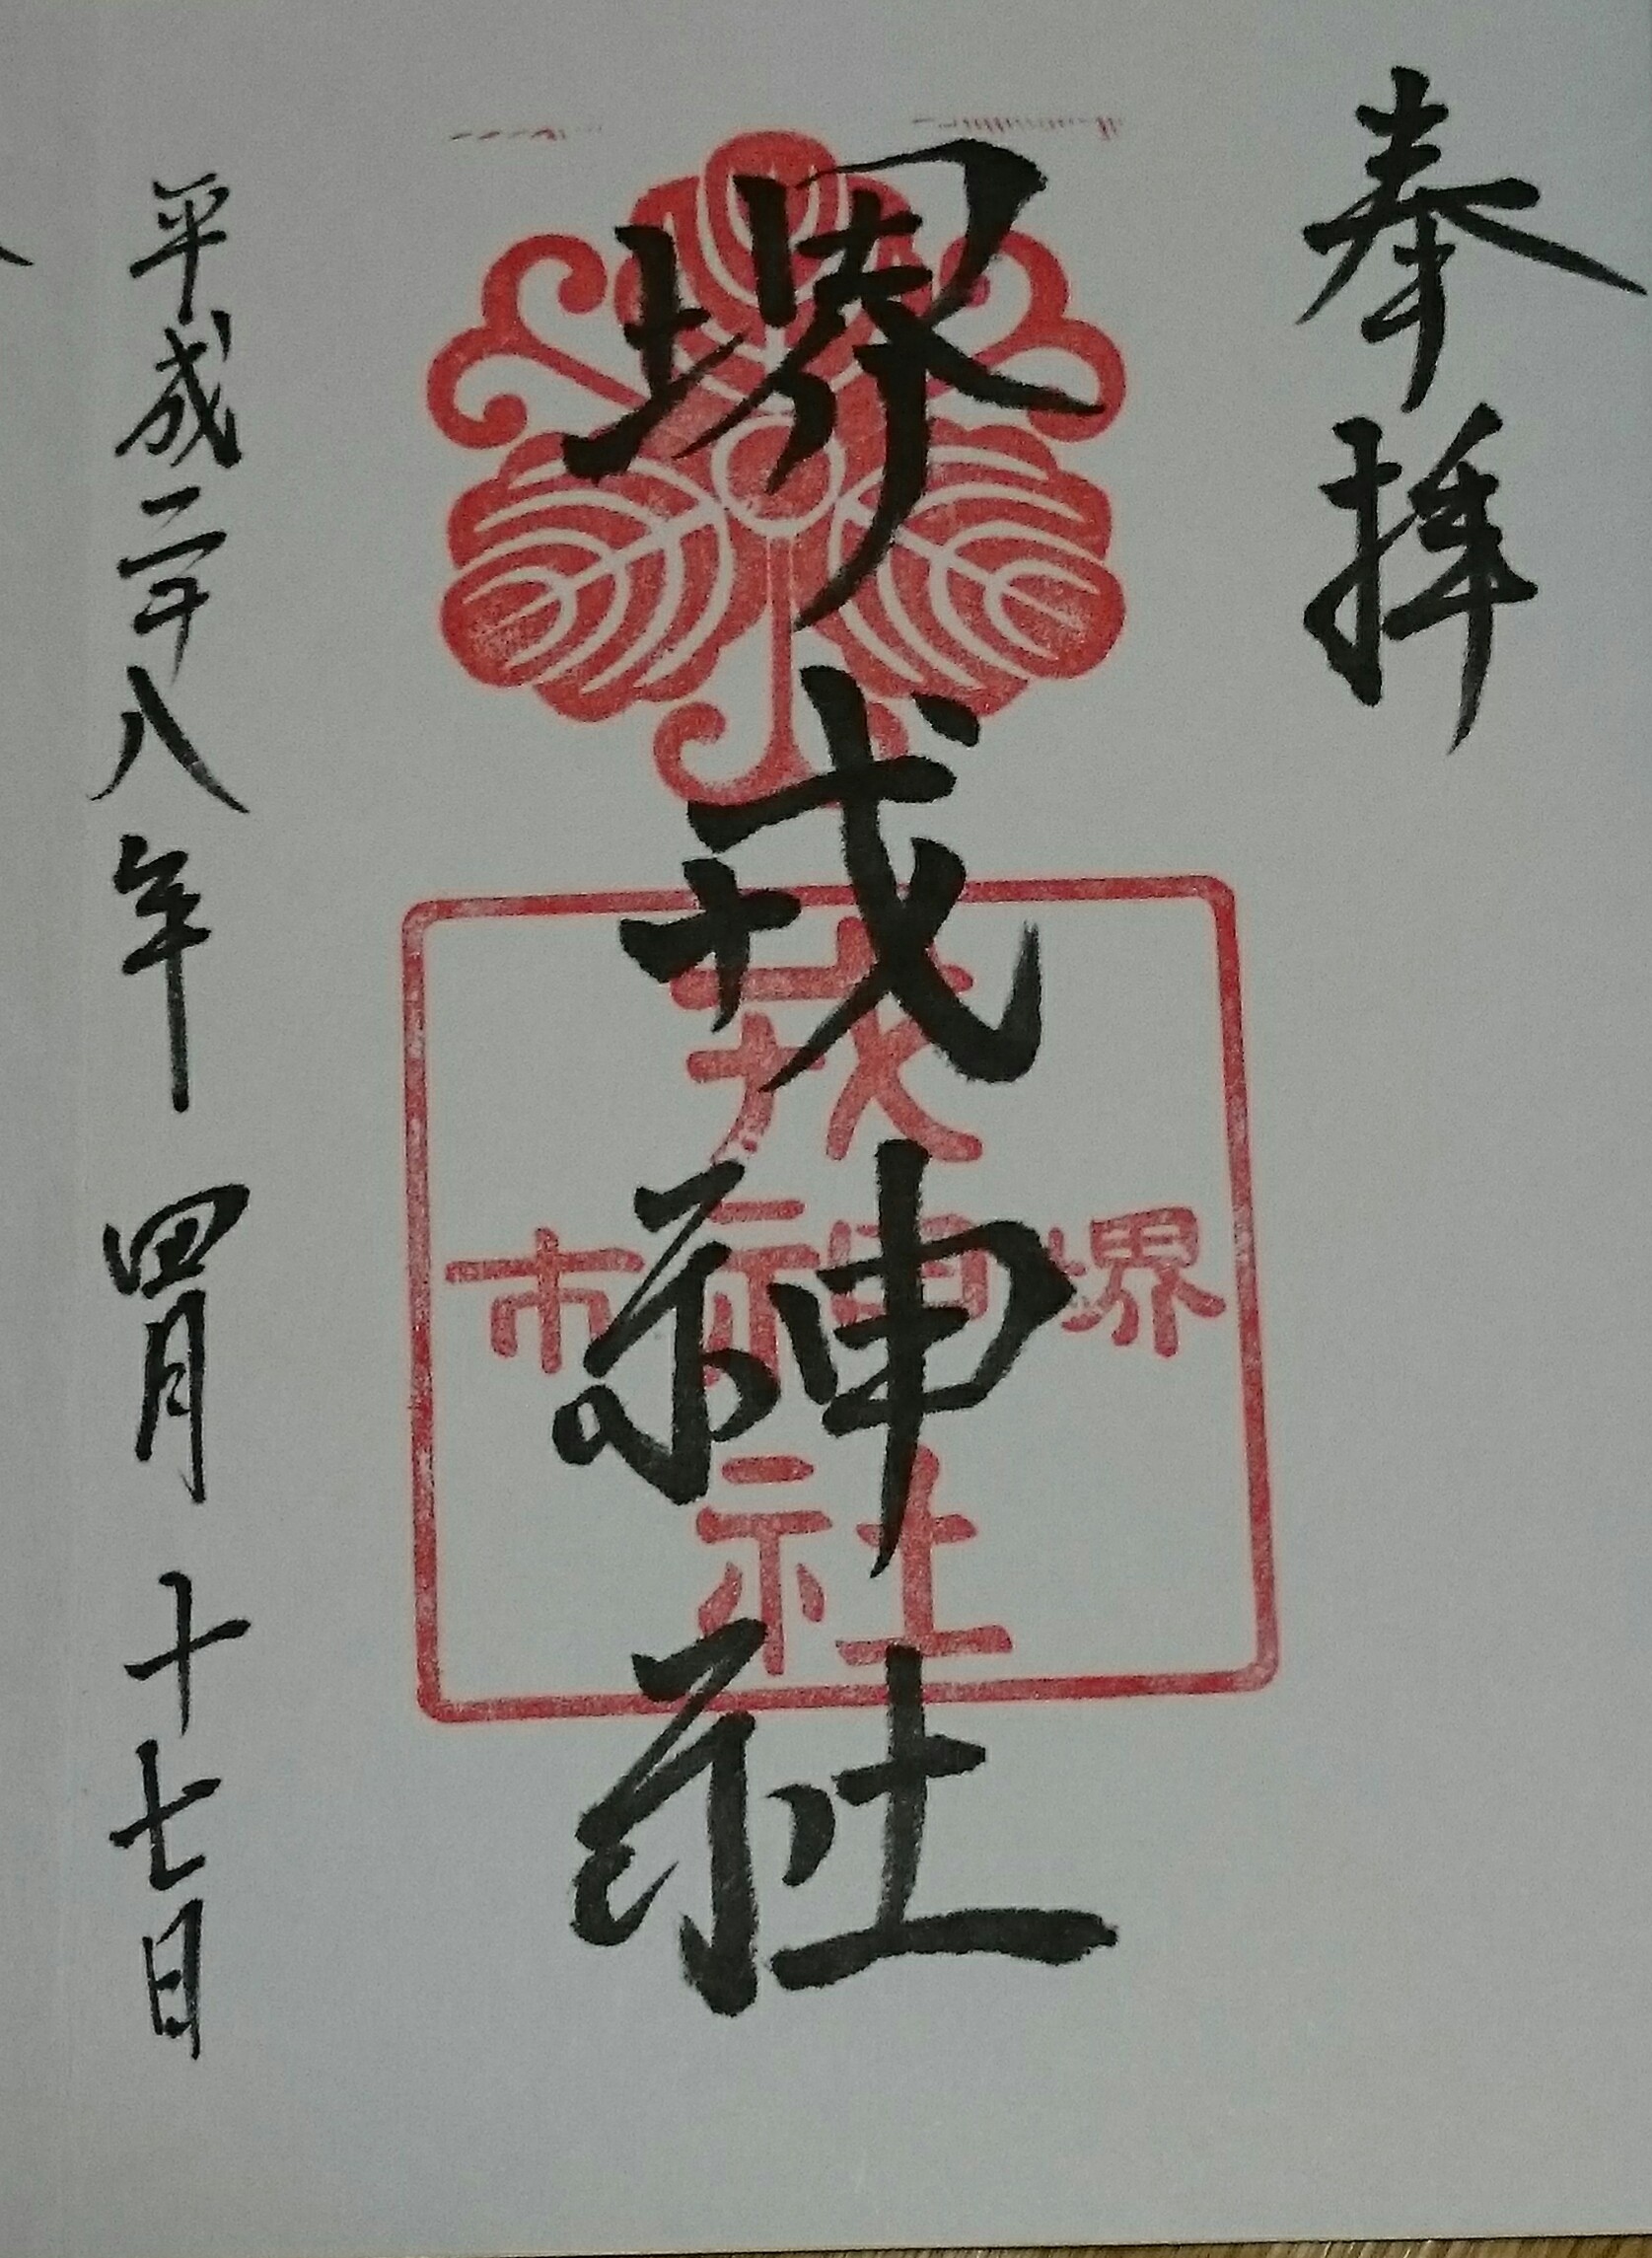 奉拝
堺戎神社
戎神社
堺市
平成二十八年四月十七日